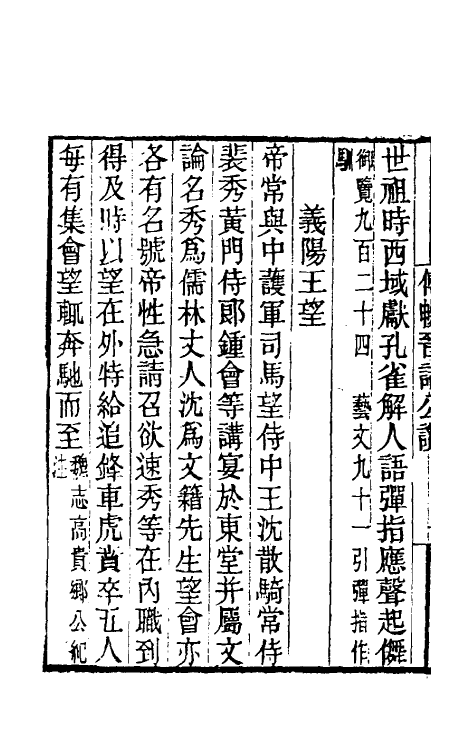 世祖時西域獻孔雀解人語彈指應聲起儛
御覽九百二十四　藝文九十一引彈指作
馴
義陽王望
帝常與中護軍司馬望侍中王沈散騎常侍
裴秀黃門侍郎鍾會等講宴於東堂并屬文
論名秀爲儒林丈人沈爲文籍先生望會亦
各有名號帝性急請召欲速秀等在內職到
得及時以望在外特給追鋒車虎賁卒五人
每有集會望輒奔馳而至
魏志高貴鄉公紀
注